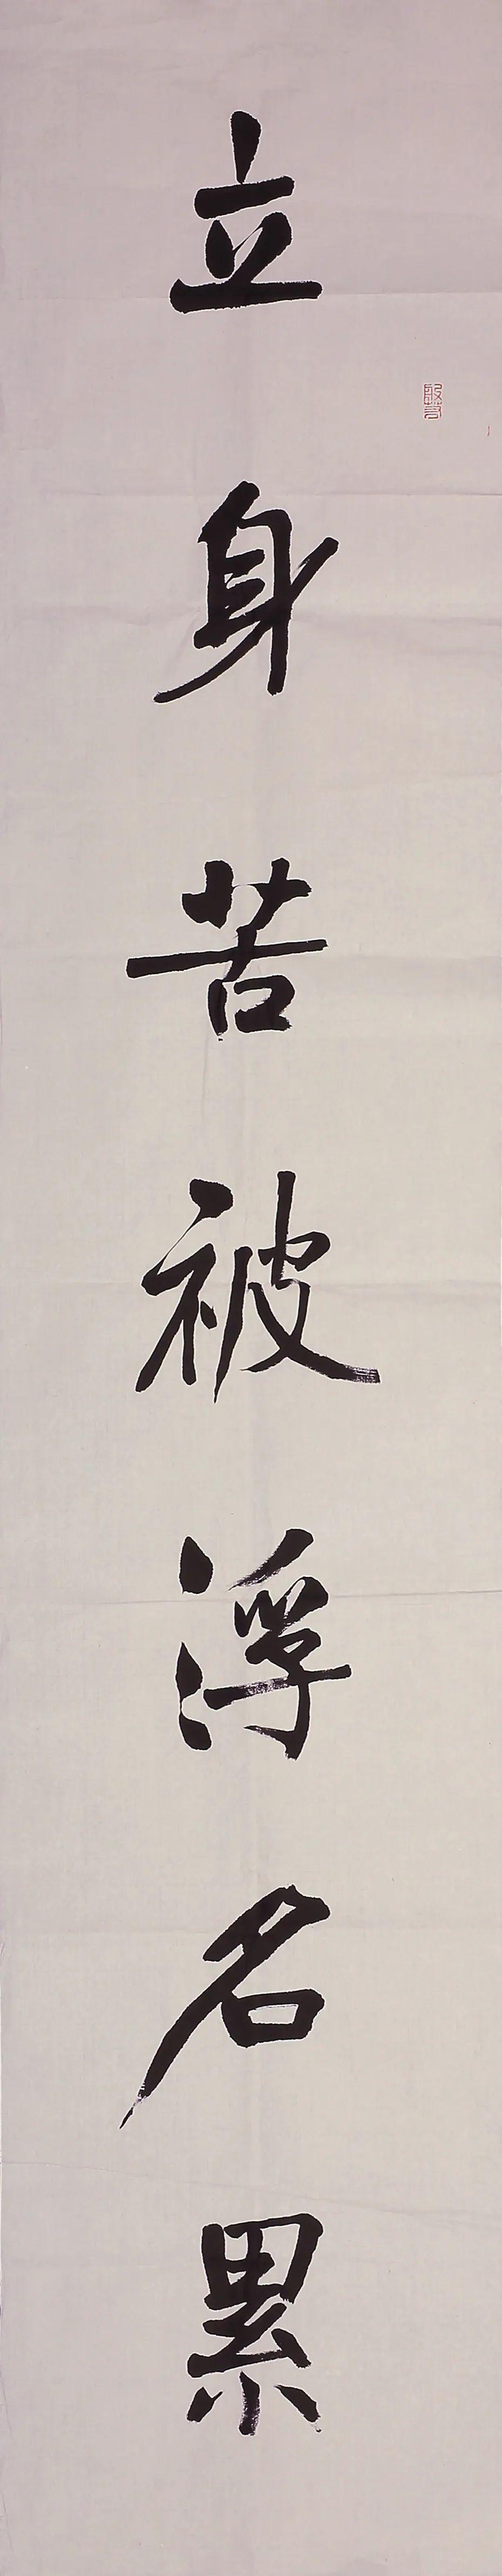 立身苦被浮名累